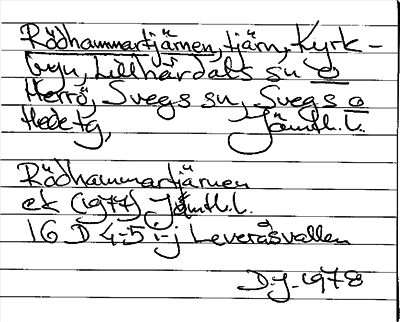 Rödhammartjärnen, tjärn, Kyrk-
byn, Lillhärdals sn o
Herrö, Svegs sn, Svegs o
Hede tg, Jämtl. l.
Rödhammartjärnen
ek (1977) Jämtl. l.
16 D 4-5 i-j Leveråsvallen
D.J. 1978